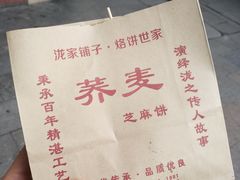 泷家铺子·烙饼世家
秉承百年精湛工艺
荞麦
芝麻饼
演绎泷之传人故事
传承·品质优良